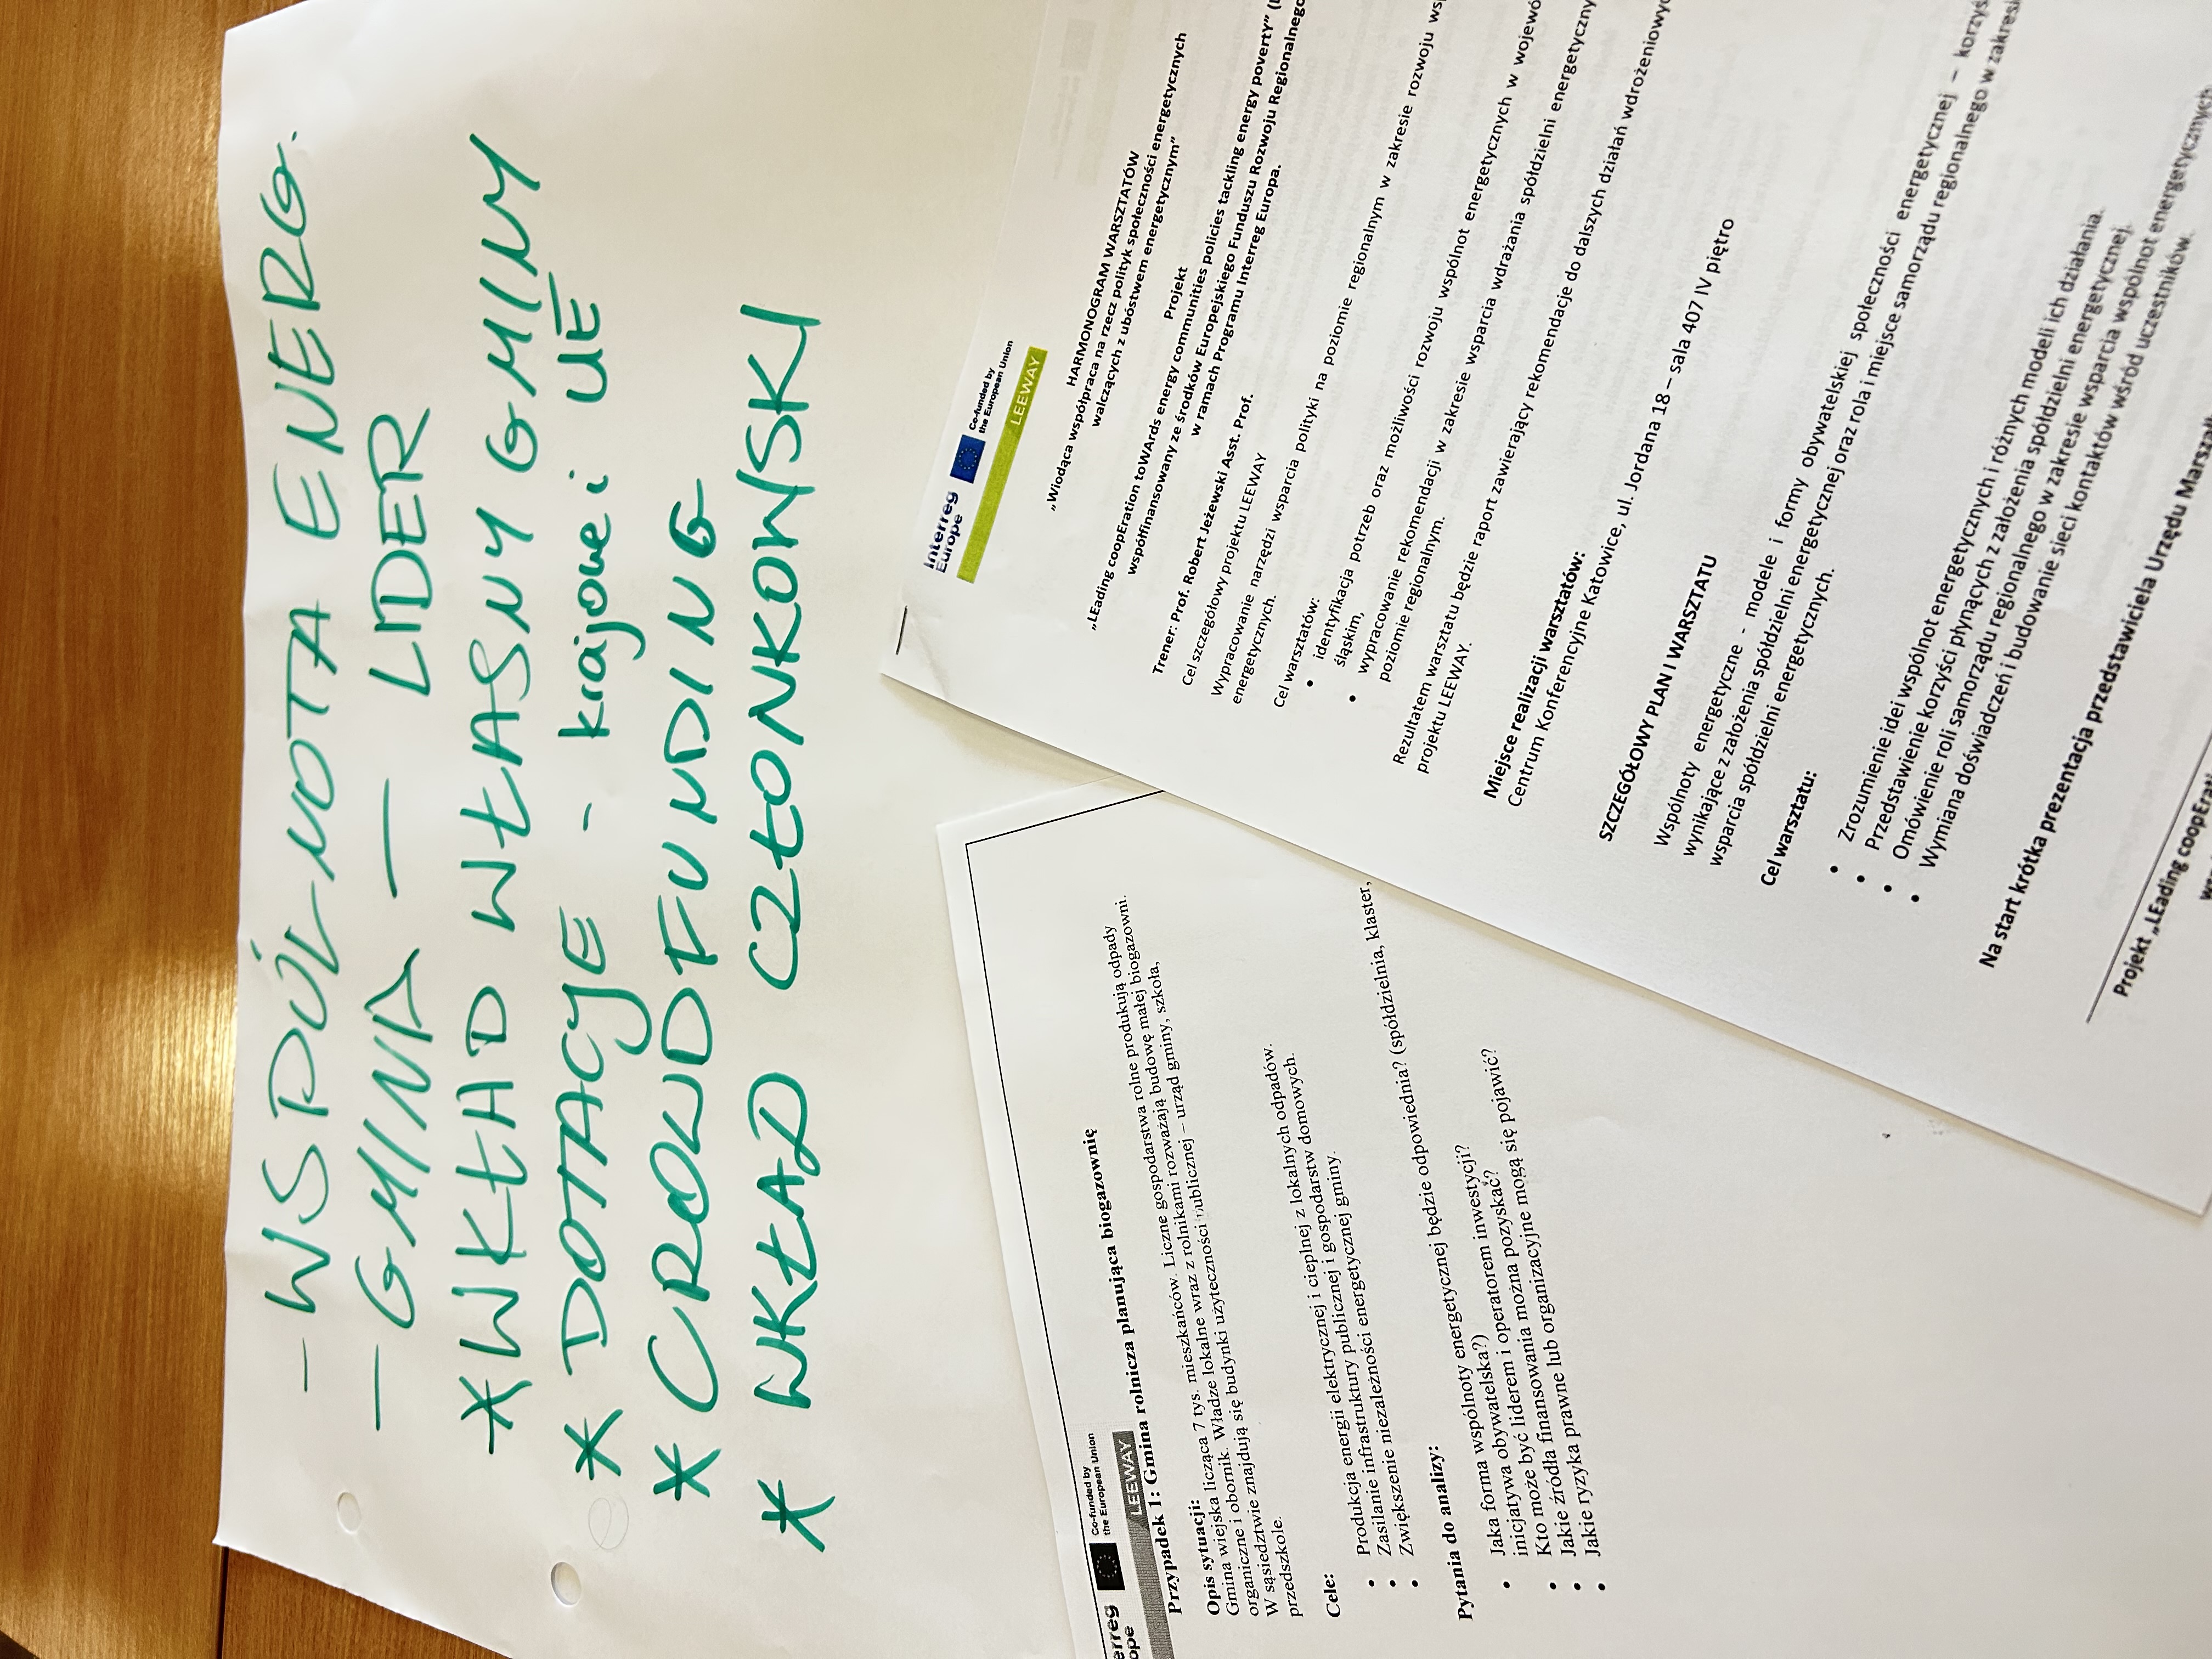 - WSPÓL-NOTA ENERG.
- GMINA - LIDER
* WKŁAD WŁASNY GMINY
* DOTACYJE - krajowe i UE
* CROWDFUNDING
* WKŁAD CZŁONKOWSKI
Interreg
Europe
Co-funded by
the European Union
LEEWAY
HARMONOGRAM WARSZTATÓW
„Wiodąca współpraca na rzecz polityk społeczności energetycznych
walczących z ubóstwem energetycznym"
Projekt
„LEading coopEration toWArds energy communities policies tackling energy poverty"
współfinansowany ze środków Europejskiego Funduszu Rozwoju Regionalnego
w ramach Programu Interreg Europa.
Trener: Prof. Robert Jeżewski Asst. Prof.
Cel szczegółowy projektu LEEWAY
Wypracowanie narzędzi wsparcia polityki na poziomie regionalnym w zakresie rozwoju
energetycznych.
Cel warsztatów:
• identyfikacja potrzeb oraz możliwości rozwoju wspólnot energetycznych w
śląskim,
• wypracowanie rekomendacji w zakresie wsparcia wdrażania spółdzielni
poziomie regionalnym.
Rezultatem warsztatu będzie raport zawierający rekomendacje do dalszych działań
projektu LEEWAY.
Miejsce realizacji warsztatów:
Centrum Konferencyjne Katowice, ul. Jordana 18 – sala 407 IV piętro
SZCZEGÓŁOWY PLAN I WARSZTATU
Wspólnoty energetyczne - modele i formy obywatelskiej społeczności energetycznej –
wynikające z założenia spółdzielni energetycznej oraz rola i miejsce samorządu regionalnego w zakresie
wsparcia spółdzielni energetycznych.
Cel warsztatu:
• Zrozumienie idei wspólnot energetycznych i różnych modeli ich działania.
• Przedstawienie korzyści płynących z założenia spółdzielni energetycznej.
• Omówienie roli samorządu regionalnego w zakresie wsparcia wspólnot energetycznych
• Wymiana doświadczeń i budowanie sieci kontaktów wśród uczestników.
Na start krótka prezentacja przedstawiciela Urzędu
Projekt „LEading
Co-funded by
the European Union
LEEWAY
Przypadek 1: Gmina rolnicza planująca biogazownię
Opis sytuacji:
Gmina wiejska licząca 7 tys. mieszkańców. Liczne gospodarstwa rolne produkują odpady
organiczne i obornik. Władze lokalne wraz z rolnikami rozważają budowę małej biogazowni.
W sąsiedztwie znajdują się budynki użyteczności publicznej – urząd gminy, szkoła,
przedszkole.
Cele:
• Produkcja energii elektrycznej i cieplnej z lokalnych odpadów.
• Zasilanie infrastruktury publicznej i gospodarstw domowych.
• Zwiększenie niezależności energetycznej gminy.
Pytania do analizy:
• Jaka forma wspólnoty energetycznej będzie odpowiednia? (spółdzielnia, klaster,
inicjatywa obywatelska?)
• Kto może być liderem i operatorem inwestycji?
• Jakie źródła finansowania można pozyskać?
• Jakie ryzyka prawne lub organizacyjne mogą się pojawić?